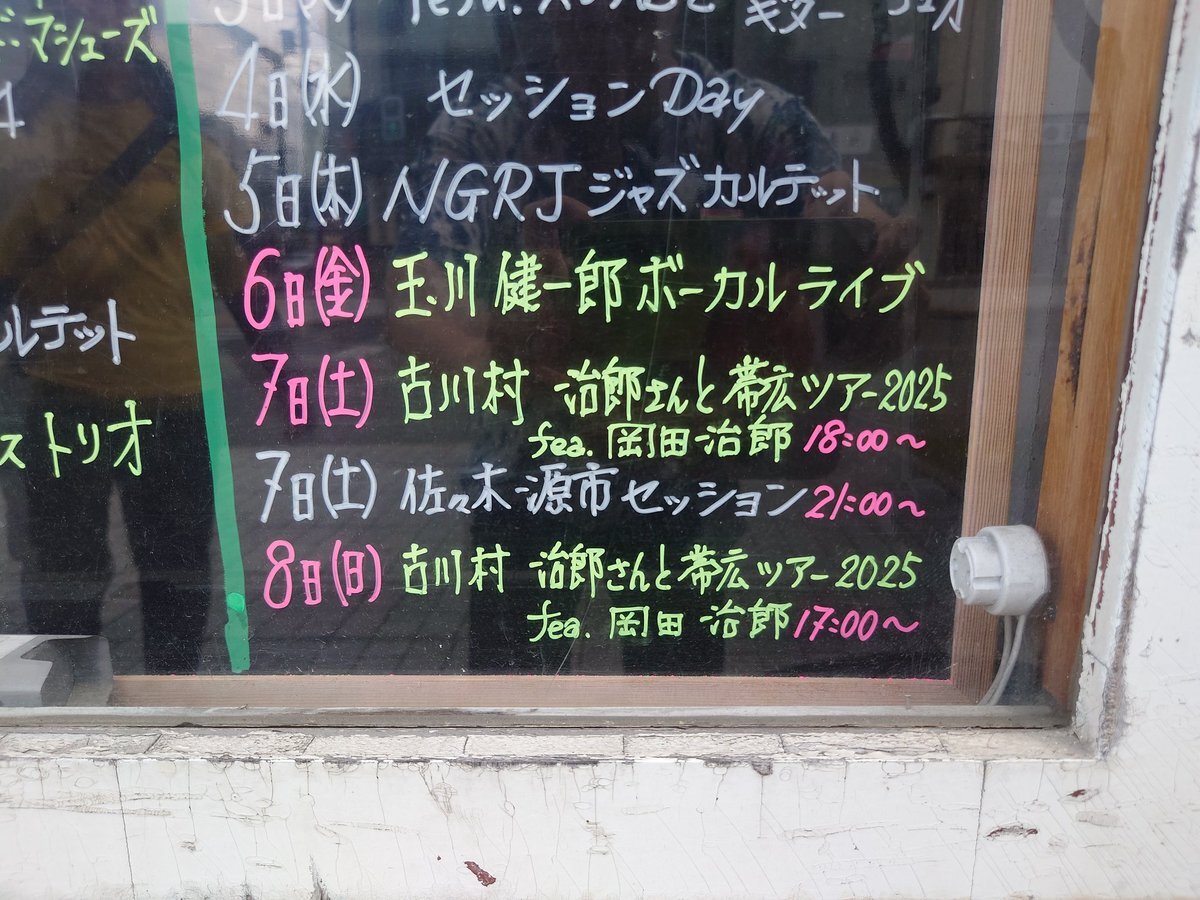 マシューズ
ルテット
ストリオ
4日(水) セッションDay
5日(木) NGRJジャズカルテット
6日(金) 玉川健一郎ボーカルライブ
7日(土) 古川村 治郎さんと帯広ツアー2025
fea. 岡田治郎 18:00～
7日(土) 佐々木源市セッション21:00～
8日(日) 古川村 治郎さんと帯広ツアー2025
fea. 岡田治郎 17:00～